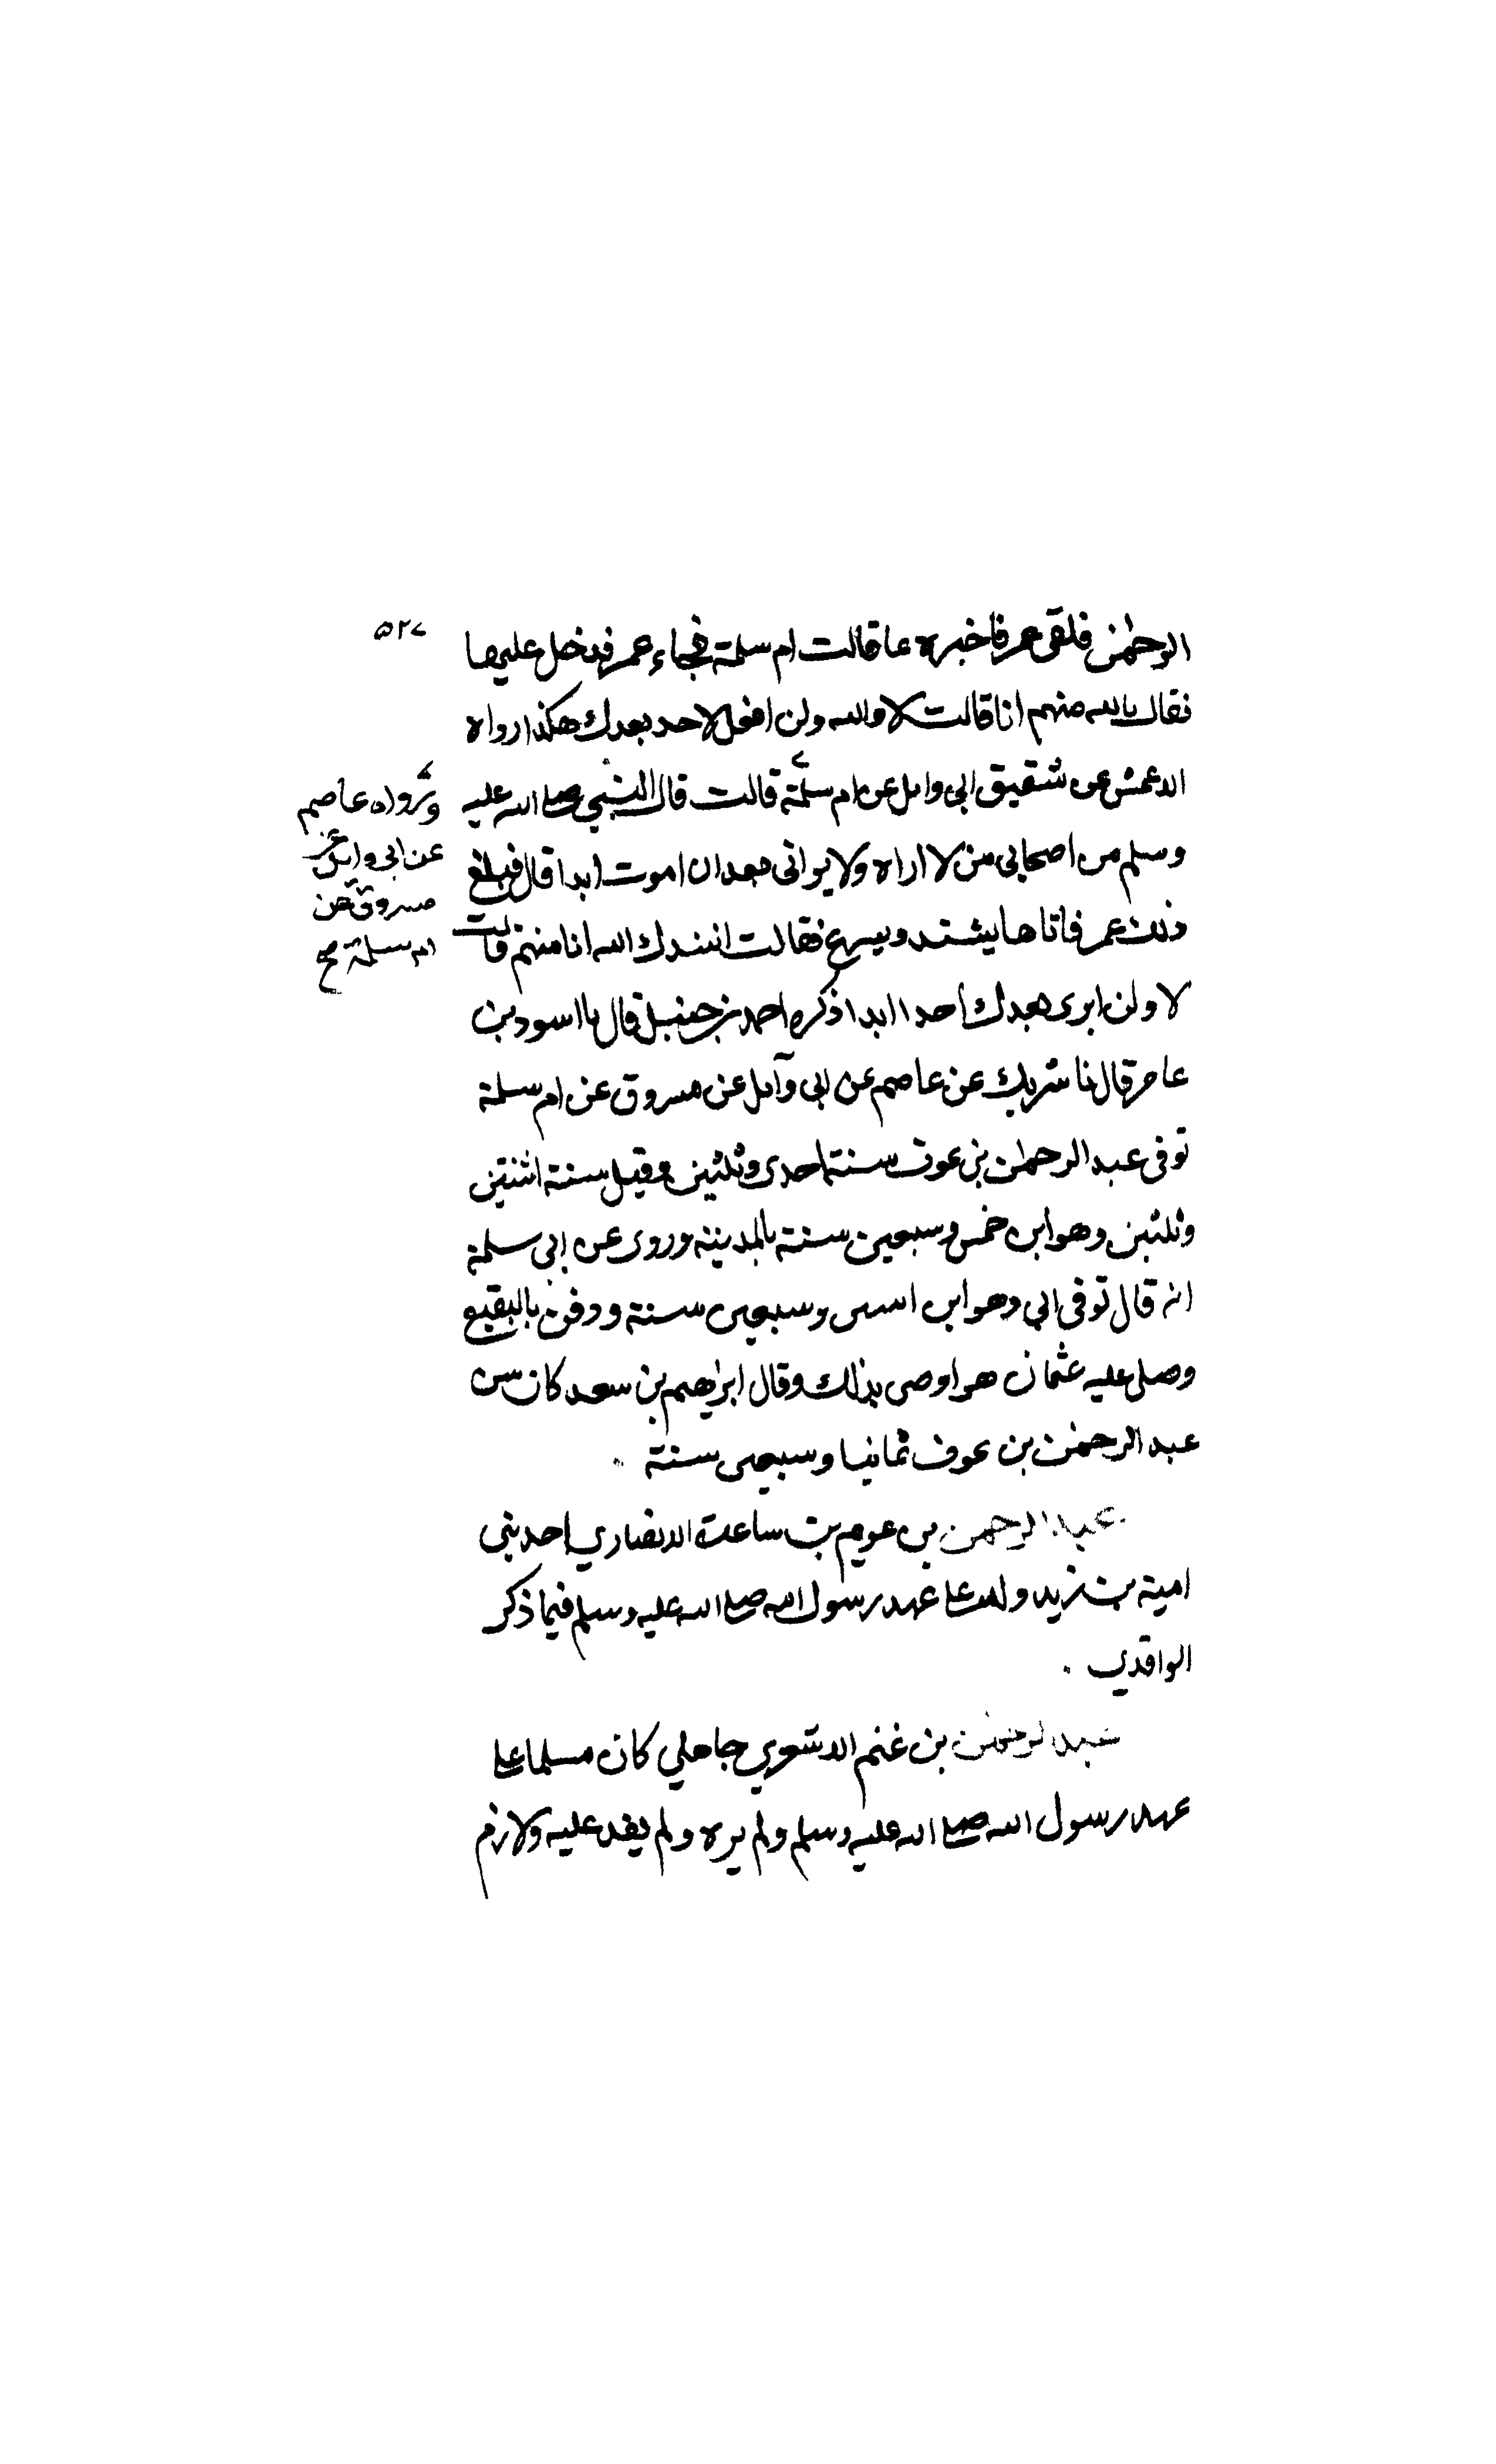 ٥٢٧
الرحمٰن فلقى عمر فاخبره عا قالت ام سلمة فجاء عمر فدخل عليها
فقال بالله منهم انا قالت لا والله ولن افعل لاحد بعدك هكذا رواه
الاعمش عن شقيق ابى وايل عن ام سلمة قالت قال النبي صلى الله عليه
وسلم من اصحابي من لا اراه ولا يراني بعد ان اموت ابدا قال فبلغ
ذلك عمر فاتاها يشتد ويسرع فقالت انشدك الله انا منهم قالت
لا ولن ابرى بعدك احدا ابدا ذكره احمد بن حنبل قال نا اسود بن
عامر قال نا شريك عن عاصم عن ابى وآيل عن مسروق عن ام سلمة
توفى عبد الرحمٰن بن عوف سنة احدى وثلثين وقيل سنة اثنتين
وثلثين وهو ابن خمس وسبعين سنة بالمدينة وروى عن ابى سلمة
انه قال توفى ابي وهو ابن اسىں وسبعين سنة ودفن بالبقيع
وصلى عليه عثمان هو اوصى بذلك وقال ابرٰهيم بن سعد كان سن
عبد الرحمٰن بن عوف ثمانيا وسبعين سنة .
عبد الرحمن بن عويم بن ساعدة الانصاري احد بنى
امية بن زيد ولد على عهد رسول الله صلى الله عليه وسلم فيما ذكر
الواقدي .
عبد الرحمٰن بن غنم الاشعري جاهلي كان مسلما على
عهد رسول الله صلى الله عليه وسلم ولم يره ولم يفد عليه ولازم
ورواه عاصم
عن ابى وايل عن
مسروق عن
ام سلمة صح